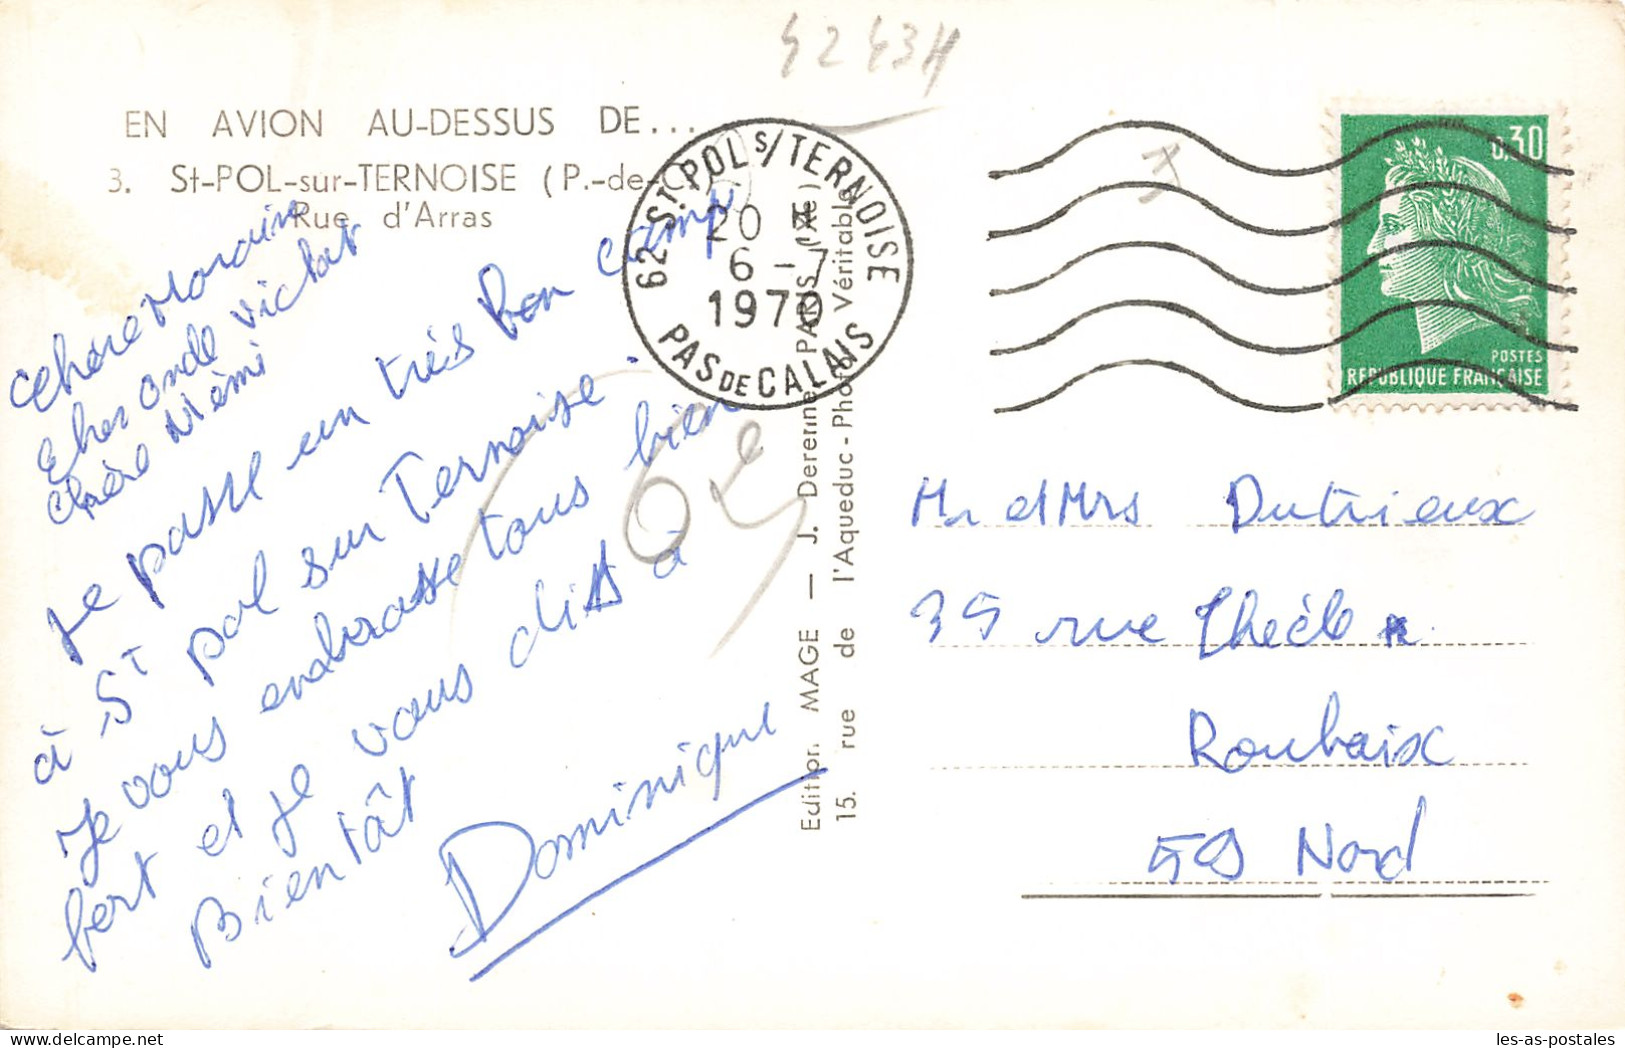 4243H
EN AVION AU-DESSUS DE...
3. St-POL-sur-TERNOISE (P.-de-C.)
Rue d'Arras
chère
cher oncle Victor
chère Mémé
je passe un très bon camp
à St pol sur Ternoise.
Je vous embrasse tous bien
fort et je vous dis à
Bientôt
Dominique
62
62 ST. POL S/ TERNOISE
20 H
6 - 7
1970
PAS DE CALAIS
Edition MAGE — J. Derenne, PARIS (XXe)
15. rue de l'Aqueduc - Photo Véritable
0,30
POSTES
REPUBLIQUE FRANÇAISE
Mr et Mrs Dutrieux
35 rue
Roubaix
59 Nord
les-as-postales